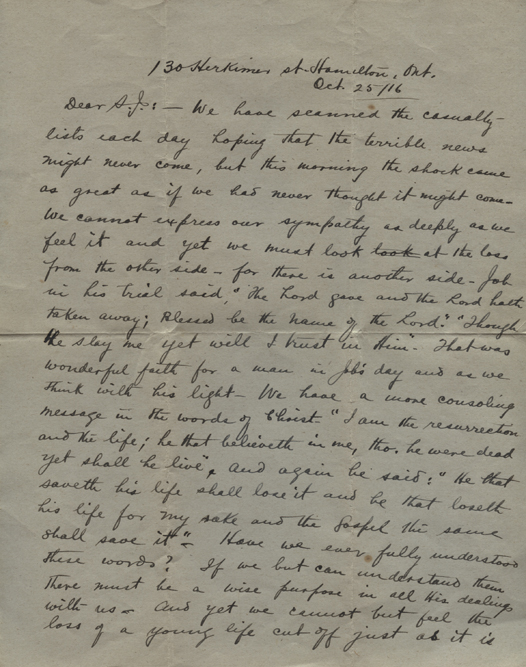 130 Herkimer st. Hamilton, Ont.
Oct. 25/16
Dear A.J.: — We have scanned the casualty
lists each day hoping that the terrible news
might never come, but this morning the shock came
as great as if we had never thought it might come—
We cannot express our sympathy as deeply as we
feel it and yet we must look took at the loss
from the other side — for there is another side — Job
in his trial said, "The Lord gave and the Lord hath
taken away; Blessed be the name of the Lord." "Though
He slay me yet will I trust in Him". That was
wonderful faith for a man in Job's day and as we
think with his light — We have a more consoling
message in the words of Christ "I am the resurrection
and the life; he that believeth in me, tho. he were dead
yet shall he live", and again he said: "He that
saveth his life shall lose it and he that loseth
his life for my sake and the Gospel the same
shall save it" — Have we ever fully understood
these words? If we but can understand them
there must be a wise purpose in all His dealings
with us — And yet we cannot but feel the
loss of a young life cut off just as it is